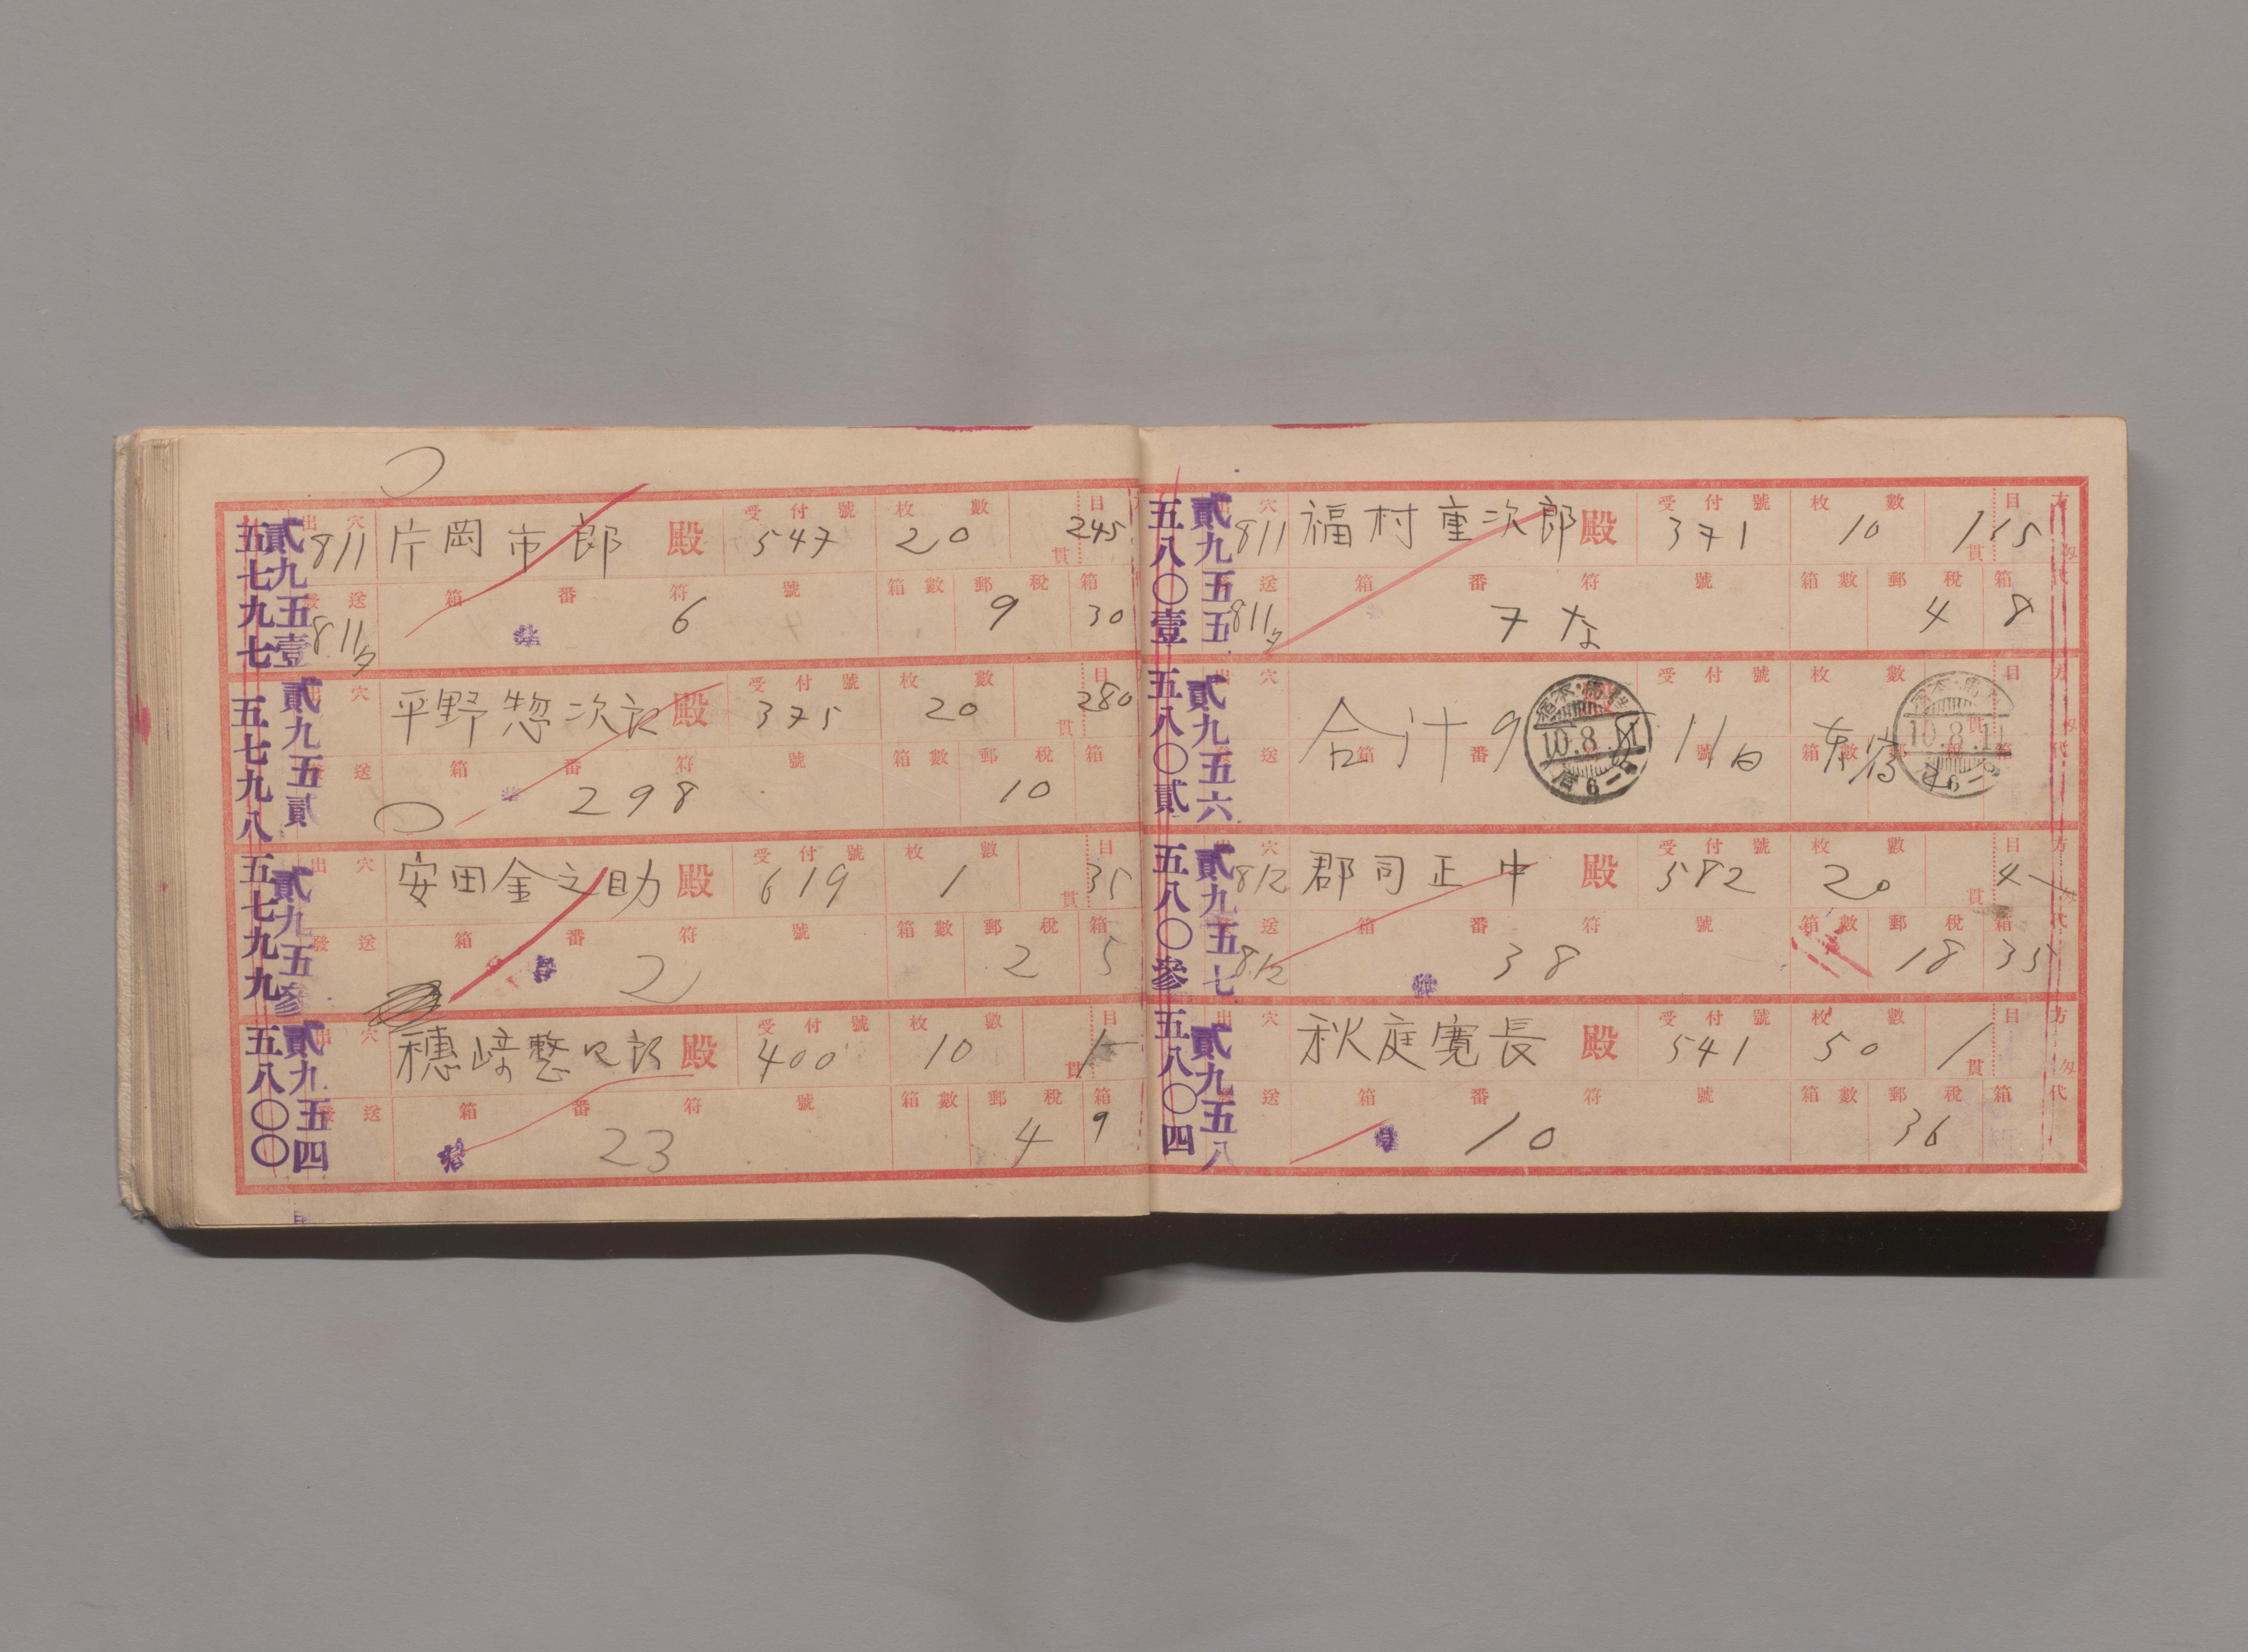 五七九七 貳九五壹
出穴 8/11 片岡市郎 殿 受付號 547 枚數 20 目 245 貫
發送 8/11夕 箱番符號 6 箱數 郵税 9 箱 30
五七九八 貳九五貳
出穴 平野惣次郎 殿 受付號 375 枚數 20 目 280 貫
發送 箱番符號 298 箱數 郵税 10 箱
五七九九 貳九五參
出穴 安田金之助 殿 受付號 619 枚數 1 目 35 貫
發送 箱番符號 2 箱數 郵税 2 箱 5
五八〇〇 貳九五四
出穴 穗﨑整次郎 殿 受付號 400 枚數 10 目 貫
發送 箱番符號 23 箱數 郵税 4 箱 9
五八〇壹 貳九五五
出穴 8/11 福村重次郎 殿 受付號 371 枚數 10 目 115 方 貫 匁
發送 8/11夕 箱番符號 7 ナ 箱數 郵税 4 箱代 8
五八〇貳 貳九五六
出穴 合計 9 11日 枚數 目 方 貫 匁
發送 箱番 號 箱數 郵税 箱代
10.8.11
10.8.11
五八〇參 貳九五七
出穴 8/12 郡司正中 殿 受付號 582 枚數 20 目 方 貫 匁
發送 8/12 箱番符號 38 箱數 郵税 18 箱代 35
五八〇四 貳九五八
出穴 秋庭寬長 殿 受付號 541 枚數 50 1 目 方 貫 匁
發送 箱番符號 10 箱數 郵税 36 箱代